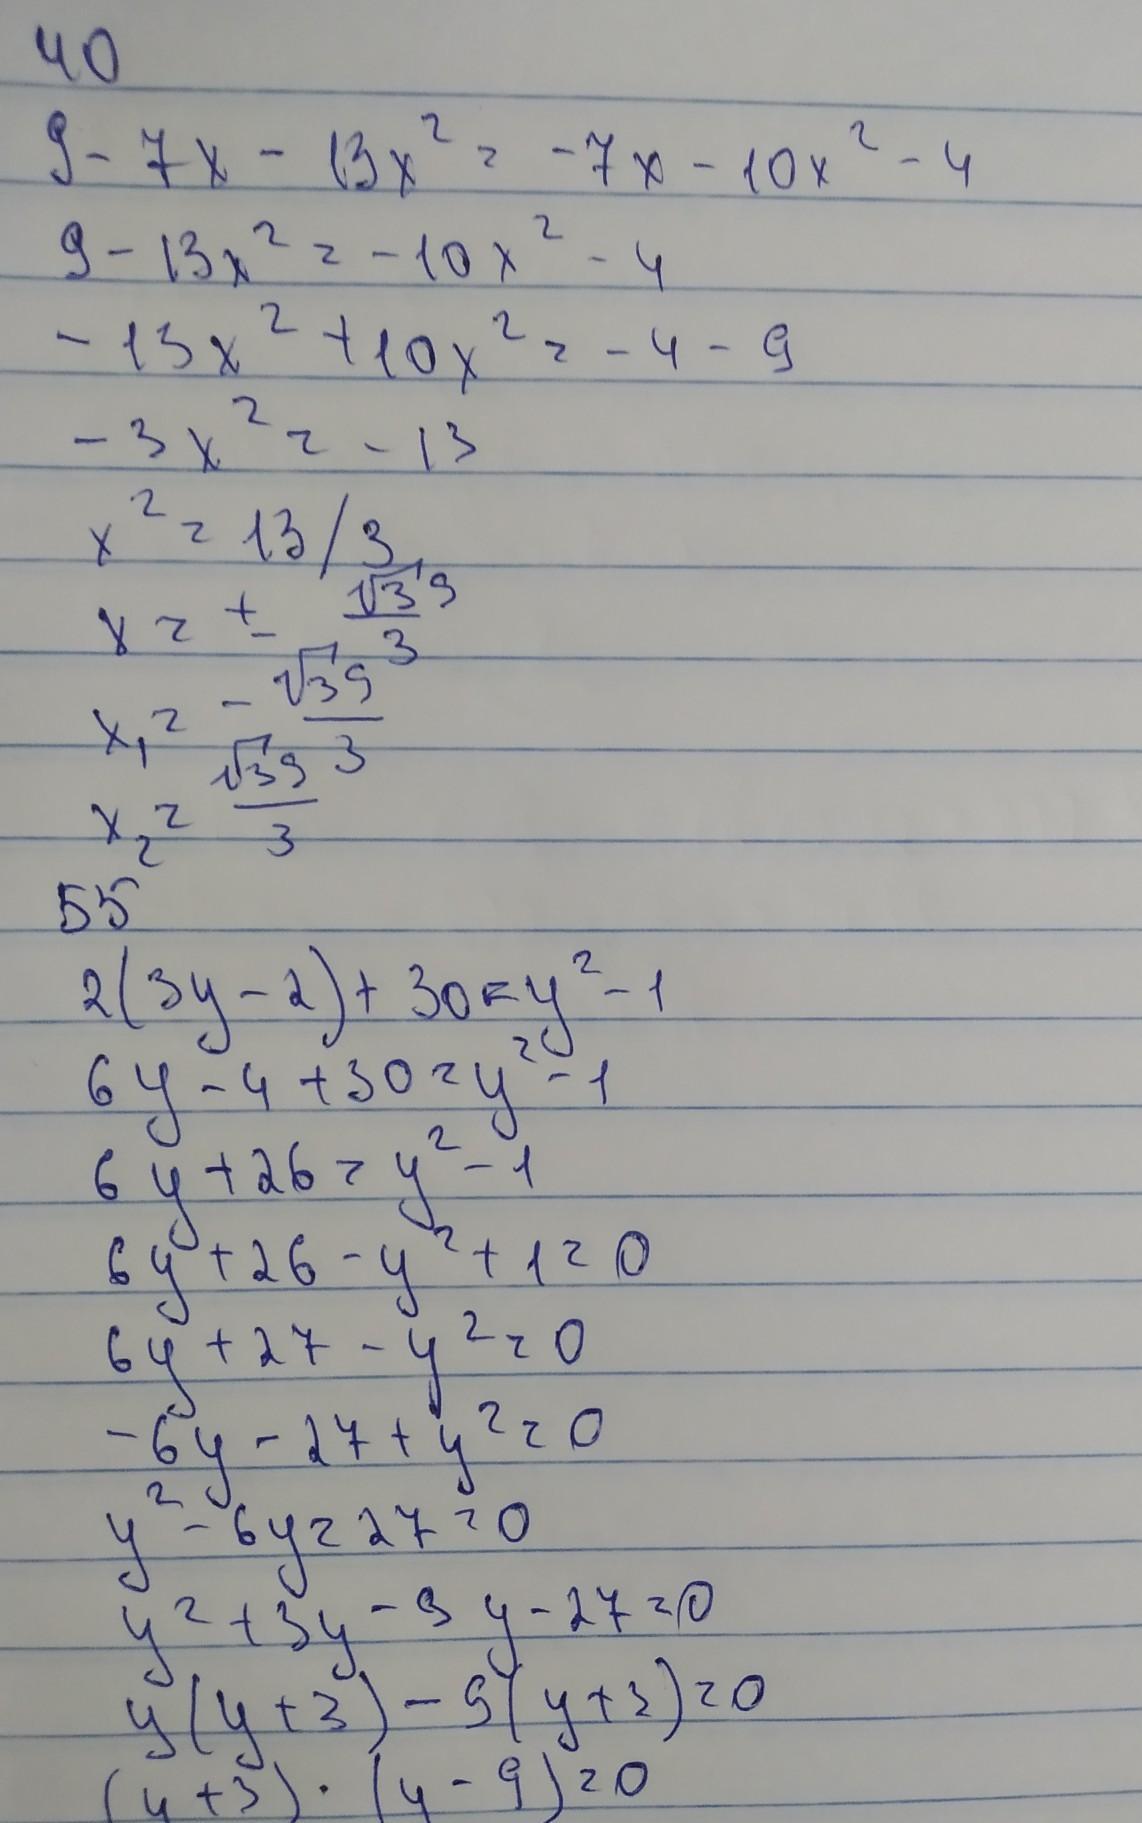 40
9 - 7x - 13x² = -7x - 10x² - 4
9 - 13x² = -10x² - 4
-13x² + 10x² = -4 - 9
-3x² = -13
x² = 13/3
x = ± √39/3
x₁ = -√39/3
x₂ = √39/3
55
2(3y - 2) + 30 = y² - 1
6y - 4 + 30 = y² - 1
6y + 26 = y² - 1
6y + 26 - y² + 1 = 0
6y + 27 - y² = 0
-6y - 27 + y² = 0
y² - 6y = 27 = 0
y² + 3y - 9y - 27 = 0
y(y + 3) - 9(y + 3) = 0
(y + 3) · (y - 9) = 0